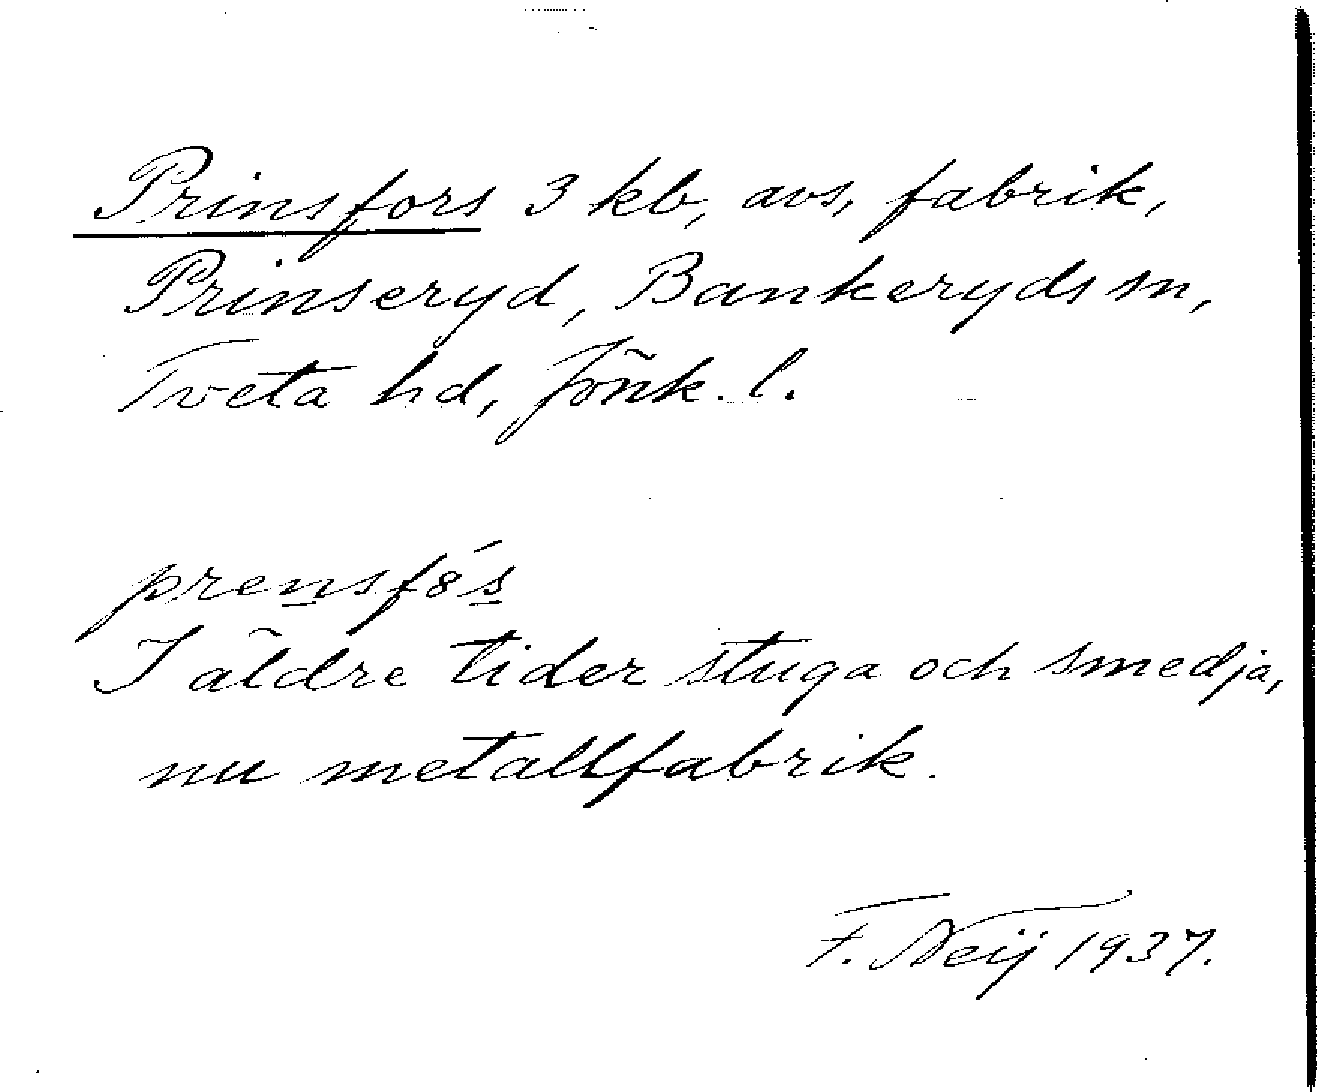 Prinsfors 3 kb, avs, fabrik,
Prinseryd, Bankeryds sn,
Tveta hd, Jönk. l.
prensfo´s
I äldre tider stuga och smedja,
nu metallfabrik.
F. Neij 1937.